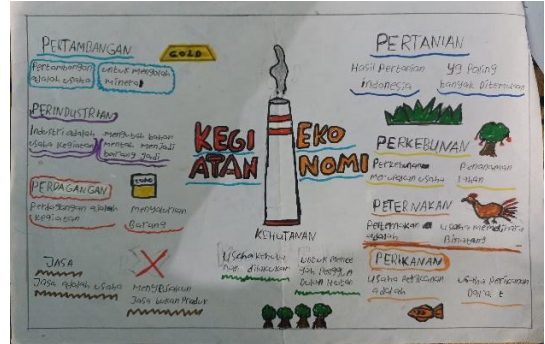 PERTAMBANGAN
GOLD
Pertambangan adalah usaha
untuk mengolah mineral
PERINDUSTRIAN
Industri adalah usaha kegiatan
mengubah bahan mentah menjadi barang jadi
PERDAGANGAN
Perdagangan adalah kegiatan
Menyalurkan Barang
JASA
Jasa adalah usaha
Menyediakan Jasa bukan Produk
KEGI
ATAN
EKO
NOMI
KEHUTANAN
Usaha
dilakukan
untuk
hutan
PERTANIAN
Hasil Pertanian
Indonesia
yg Paling
banyak Ditemukan
PERKEBUNAN
Perkebunan
Merupakan usaha
Penanaman
lahan
PETERNAKAN
Peternakan
adalah
usaha
Binatang
PERIKANAN
Usaha Perikanan
adalah
usaha Perikanan